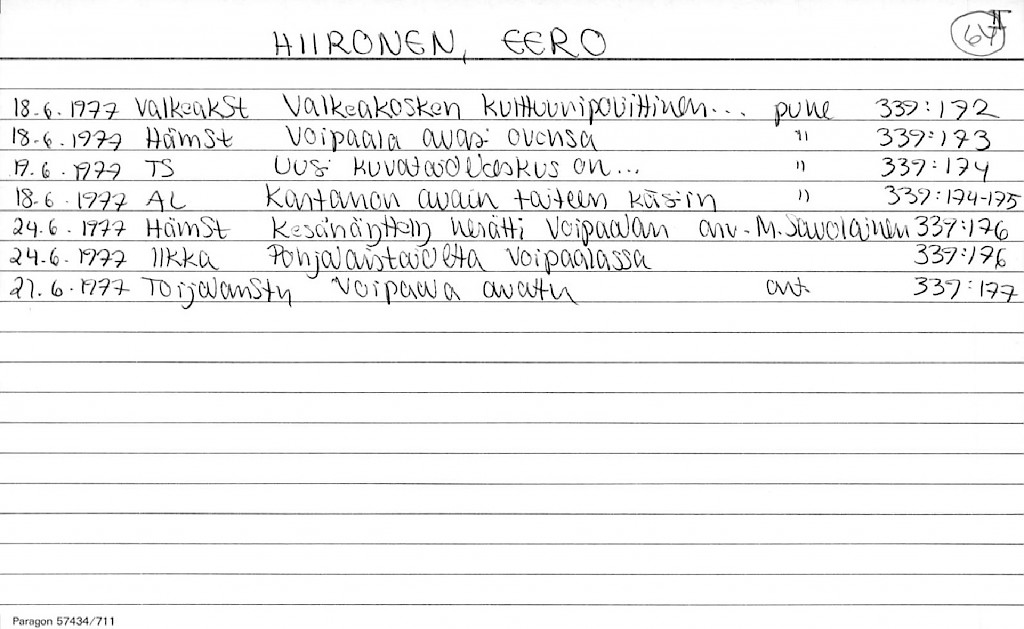 HIIRONEN, EERO
64 II
18.6.1977 ValkeakSt Valkeakosken kulttuuripoliittinen... puhe 339:172
18.6.1977 HämSt Voipaala avasi ovensa " 339:173
19.6.1977 TS Uusi kuvataidekeskus on... " 339:174
18.6.1977 AL Kartanon avain taiteen käsiin " 339:174-175
24.6.1977 HämSt Kesänäyttely herätti Voipaalan arv. M. Savolainen 339:176
24.6.1977 Ilkka Pohjalaistaidetta Voipaalassa 339:176
21.6.1977 ToijalanSty Voipaala avattu art. 339:177
Paragon 57434/711